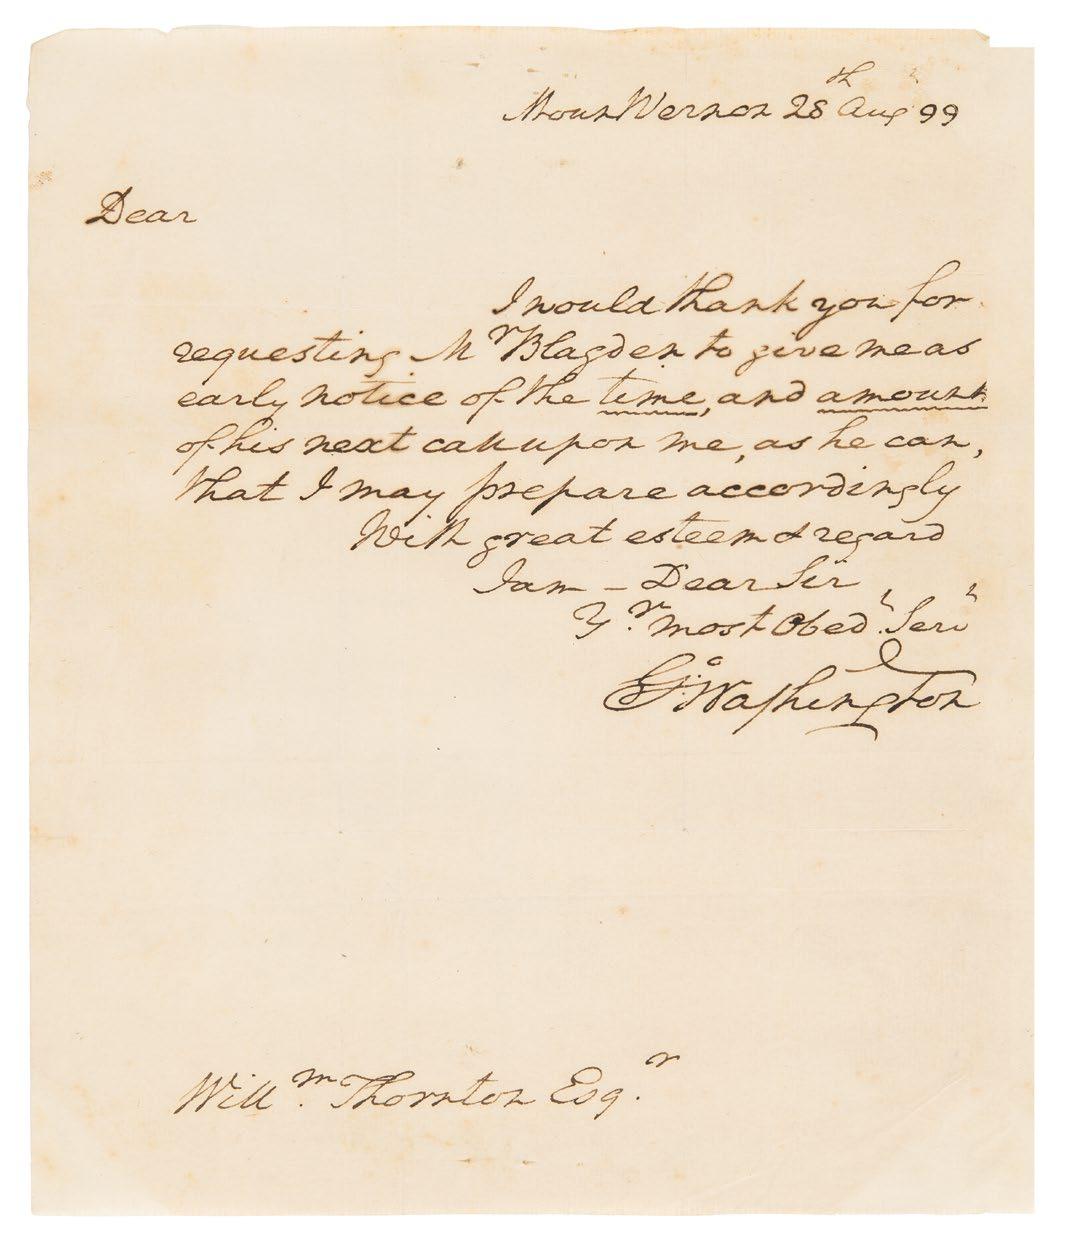 Mount Vernon 28th Augt 99
Dear
I would thank you for
requesting Mr Blagden to give me as
early notice of the time, and amount
of his next call upon me, as he can,
that I may prepare accordingly
With great esteem & regard
I am – Dear Sir
Yr. most Obedt. Servt
Go: Washington
Willm. Thornton Esqr.